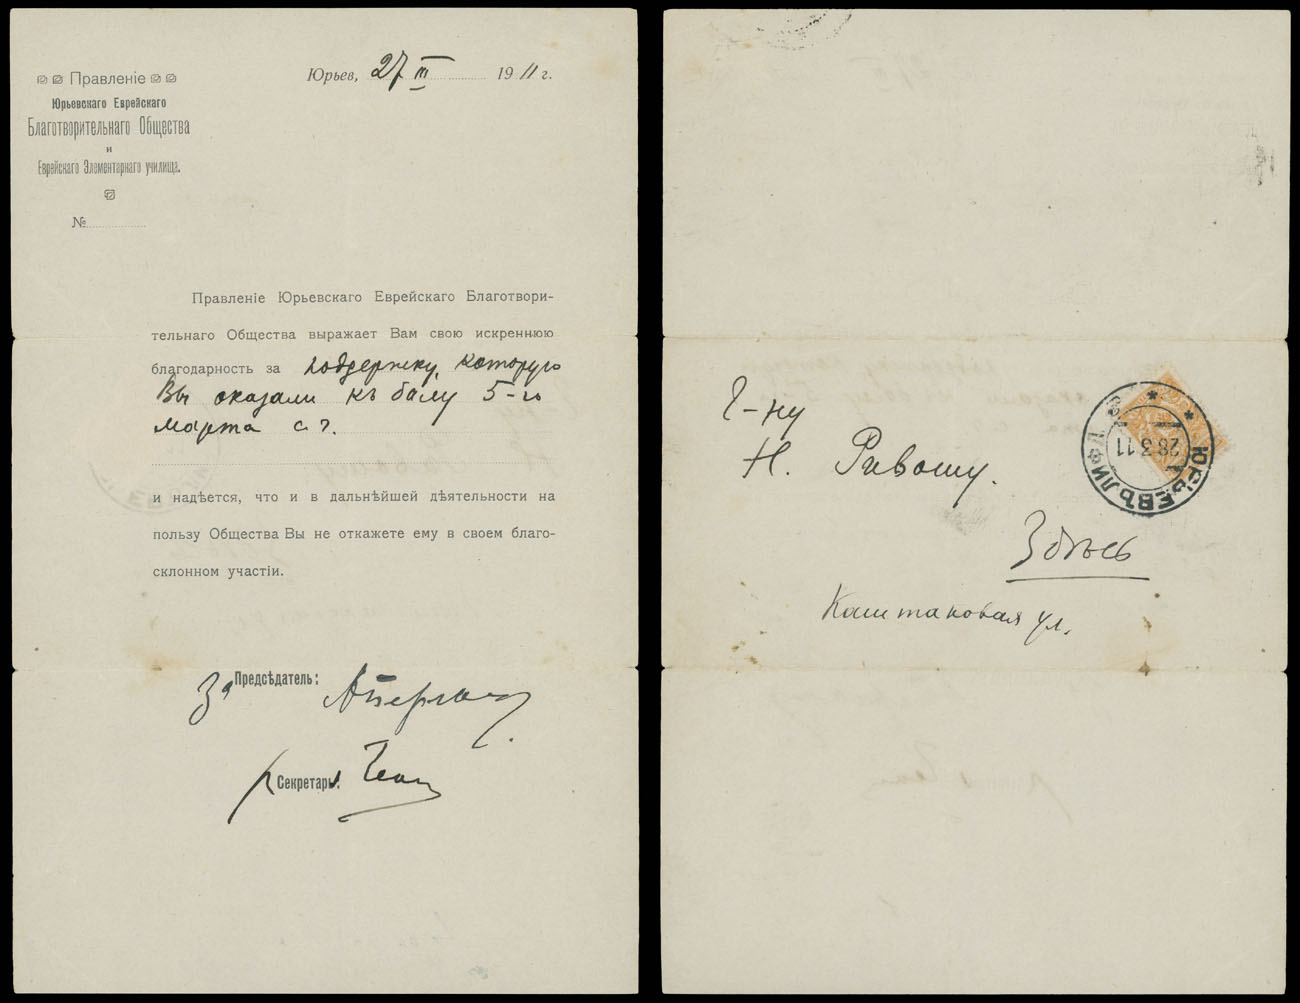 Правленіе
Юрьевскаго Еврейскаго
Благотворительнаго Общества
и
Еврейскаго Элементарнаго училища.
№
Юрьев, 27 III 1911 г.
Правленіе Юрьевскаго Еврейскаго Благотвори-
тельнаго Общества выражает Вам свою искреннюю
благодарность за поддержку, которую
Вы оказали къ балу 5-го
марта с. г.
и надѣется, что и в дальнѣйшей дѣятельности на
пользу Общества Вы не откажете ему в своем благо-
склонном участіи.
За Предсѣдатель:
Секретарь:
Г-ну
Н. Равошу.
Здѣсь
Каштановая ул.
ЮРЬЕВЪ ЛИФЛ.
28.3.11